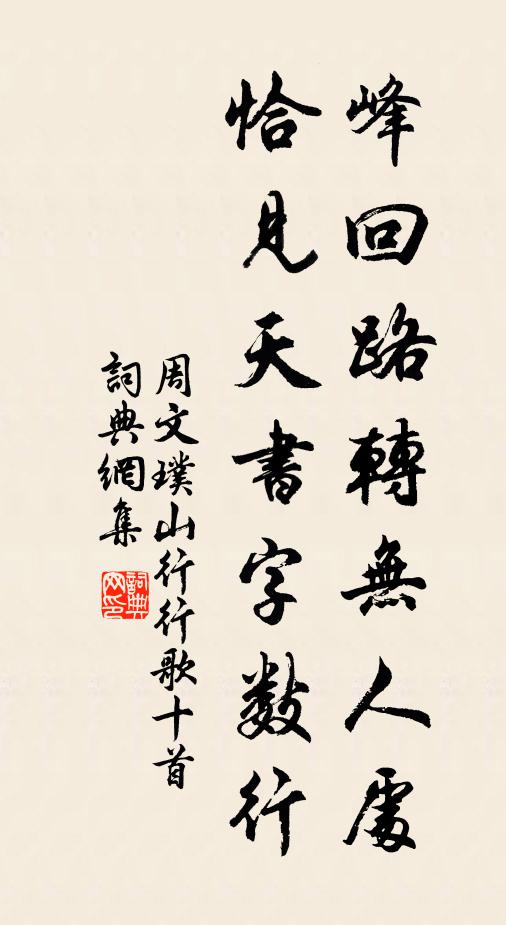 峰回路轉無人處
恰見天書字数行
周文璞山行行歌十首
詞典網集
詞典网印